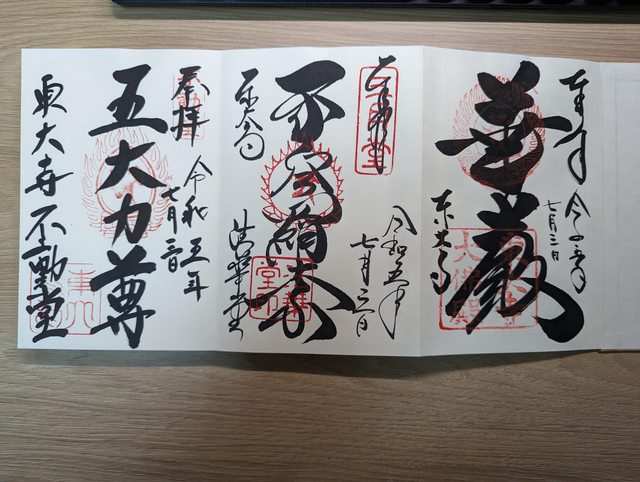 奉拝
令和五年
七月三日
華厳
東大寺
大佛殿
令和五年
七月三日
不空羂索
東大寺
法華堂
奉拝
令和五年
七月三日
五大力尊
東大寺不動堂